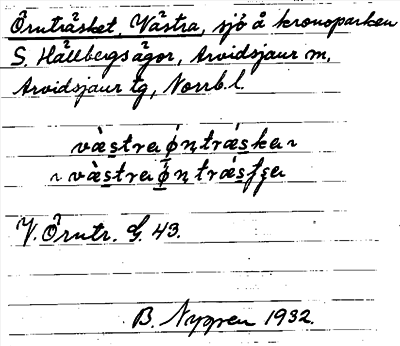 Örnträsket, Västra, sjö å kronoparken
S. Hällbergsågor, Arvidsjaur sn,
Arvidsjaur tg, Norrb. l.
væ̀stra ǿn̥træ̀ska ~
~ væ̀stra ǿn̥træ̀sʃʒa
V. Örntr. G. 43.
B. Nygren 1932.